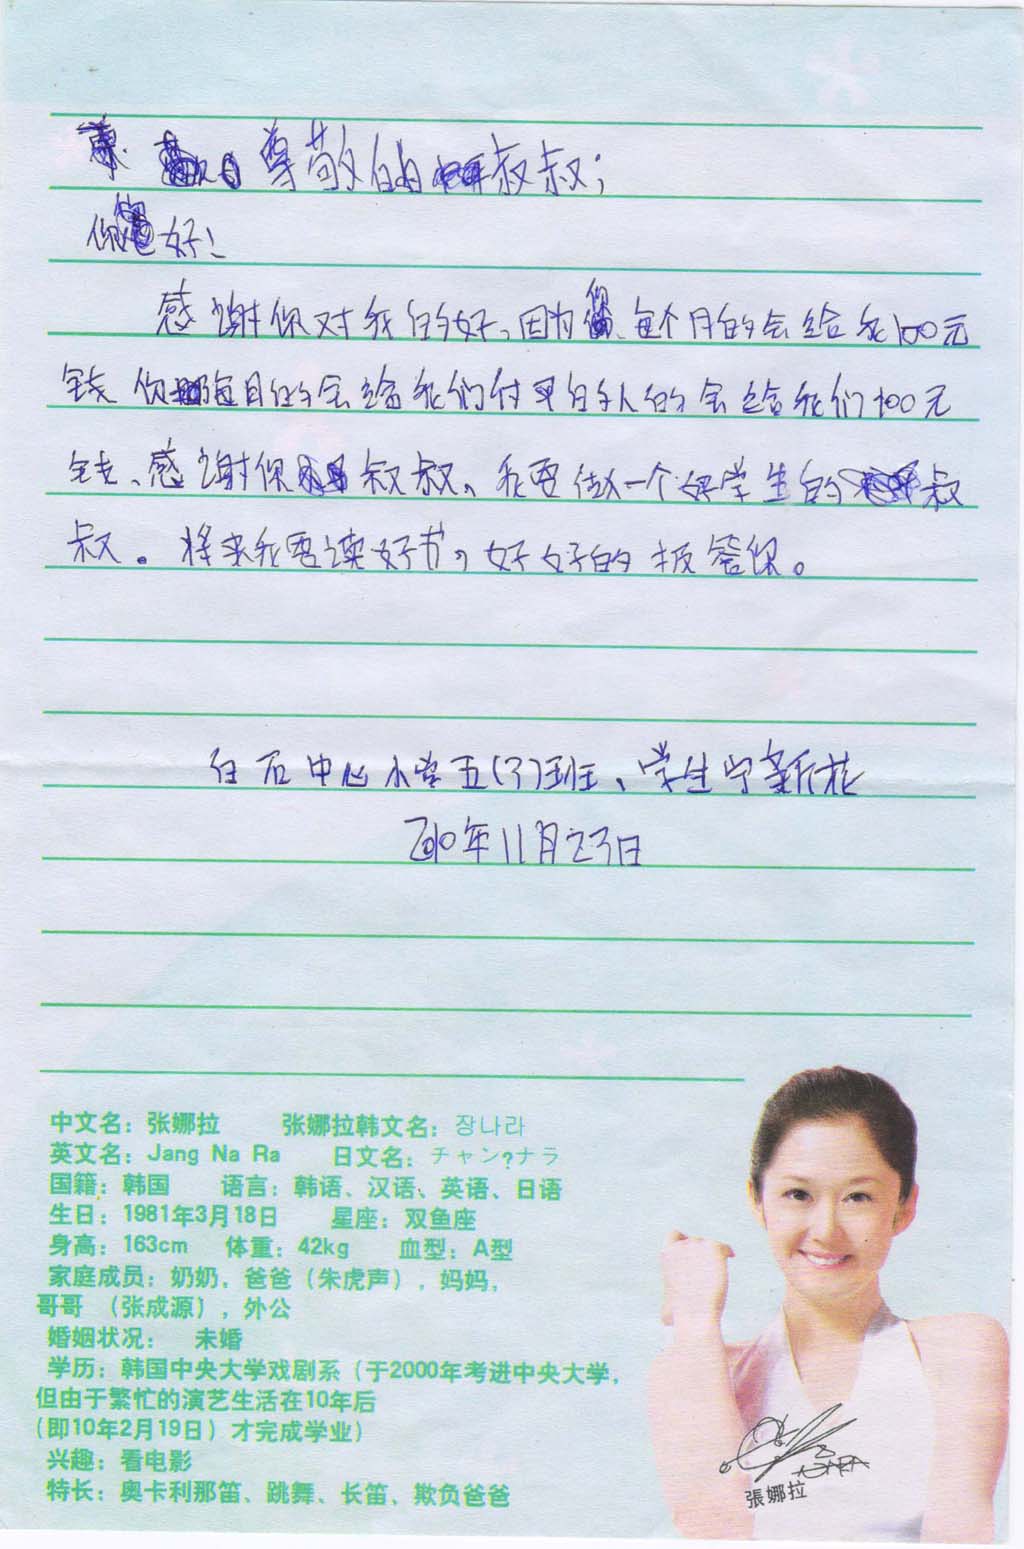 尊敬的叔叔；
你好！
感谢你对我的好、因为你、每个月的会给我100元
钱 你每月的会给我们付 的人的会给我们100元
钱、感谢你叔叔、我要做一个好学生的叔
叔。将来我要读好书，好好的报答你。
白石中心小学五(3)班、学生宁新花
2010年11月23日
中文名：张娜拉 张娜拉韩文名：장나라
英文名：Jang Na Ra 日文名：チャン?ナラ
国籍：韩国 语言：韩语、汉语、英语、日语
生日：1981年3月18日 星座：双鱼座
身高：163cm 体重：42kg 血型：A型
家庭成员：奶奶，爸爸（朱虎声），妈妈，
哥哥 （张成源），外公
婚姻状况： 未婚
学历：韩国中央大学戏剧系（于2000年考进中央大学，
但由于繁忙的演艺生活在10年后
（即10年2月19日）才完成学业）
兴趣：看电影
特长：奥卡利那笛、跳舞、长笛、欺负爸爸
張娜拉